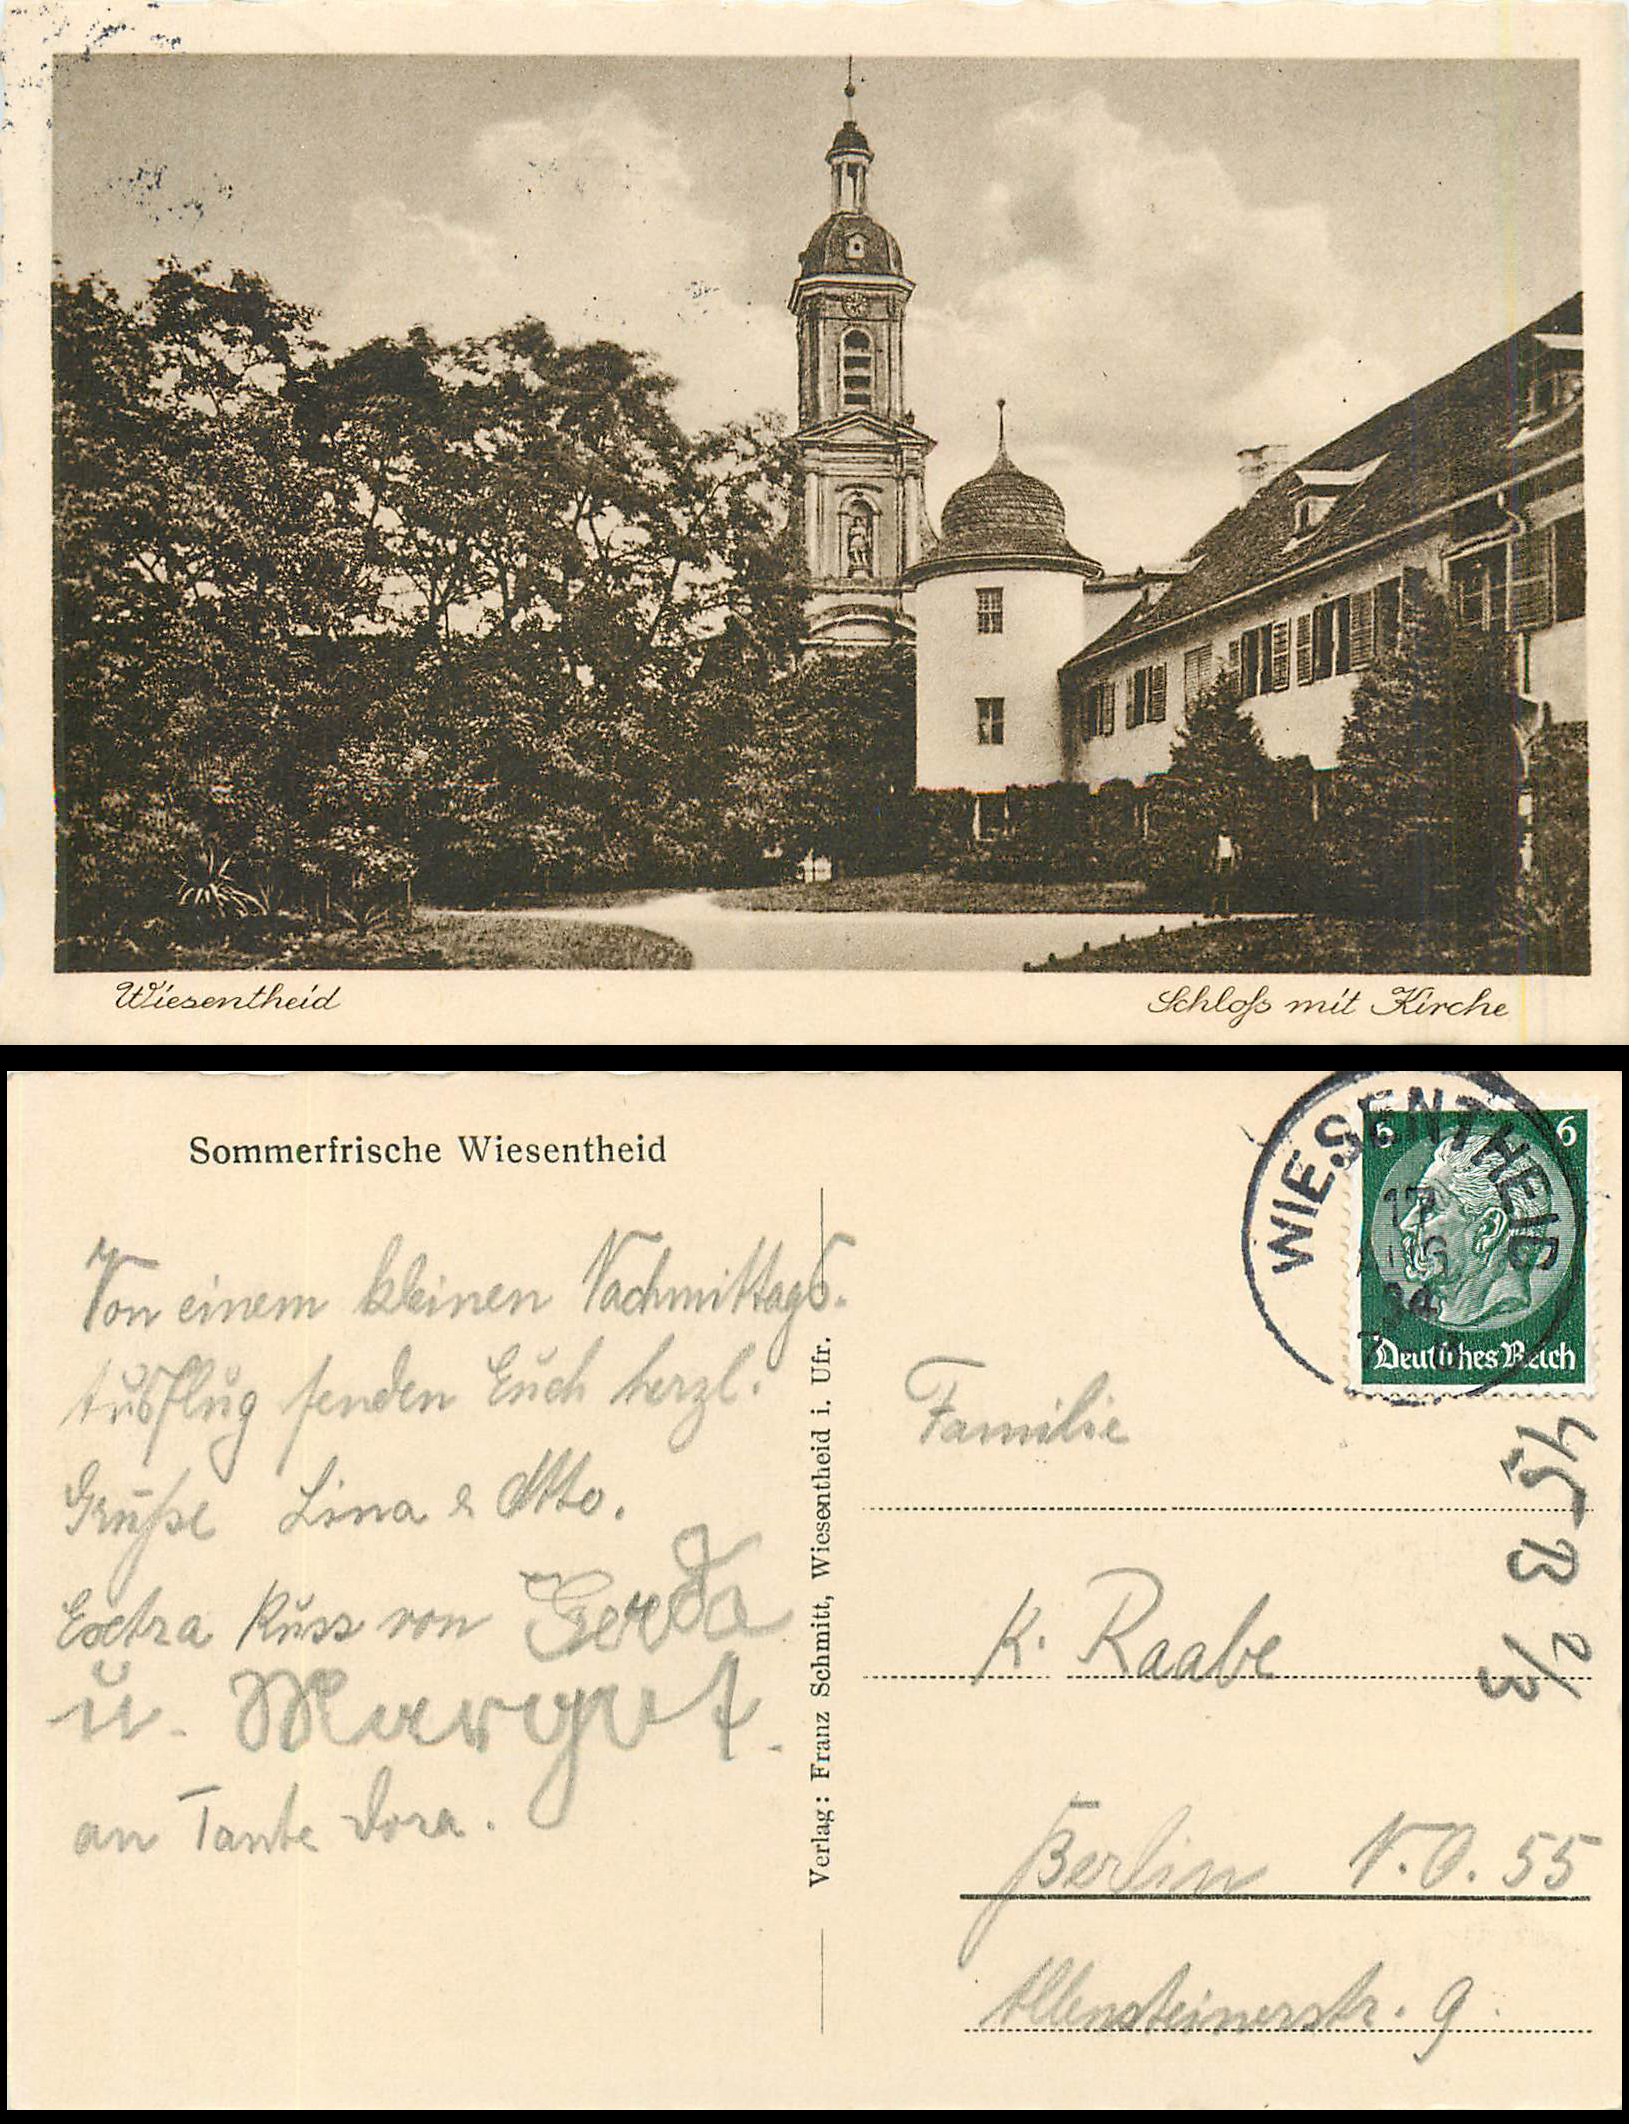 Wiesentheid
Schloß mit Kirche
Sommerfrische Wiesentheid
Von einem kleinen Nachmittags-
Ausflug senden Euch herzl.
Grüße Lina & Otto.
Extra Kuss von Gerda
u. Margot.
an Tante Dora.
Verlag: Franz Schmitt, Wiesentheid i. Ufr.
WIESENTHEID
17
34
6 6
Deutsches Reich
Familie
K. Raabe
Berlin N.O. 55
Allensteinerstr. 9.
45 B 2/3